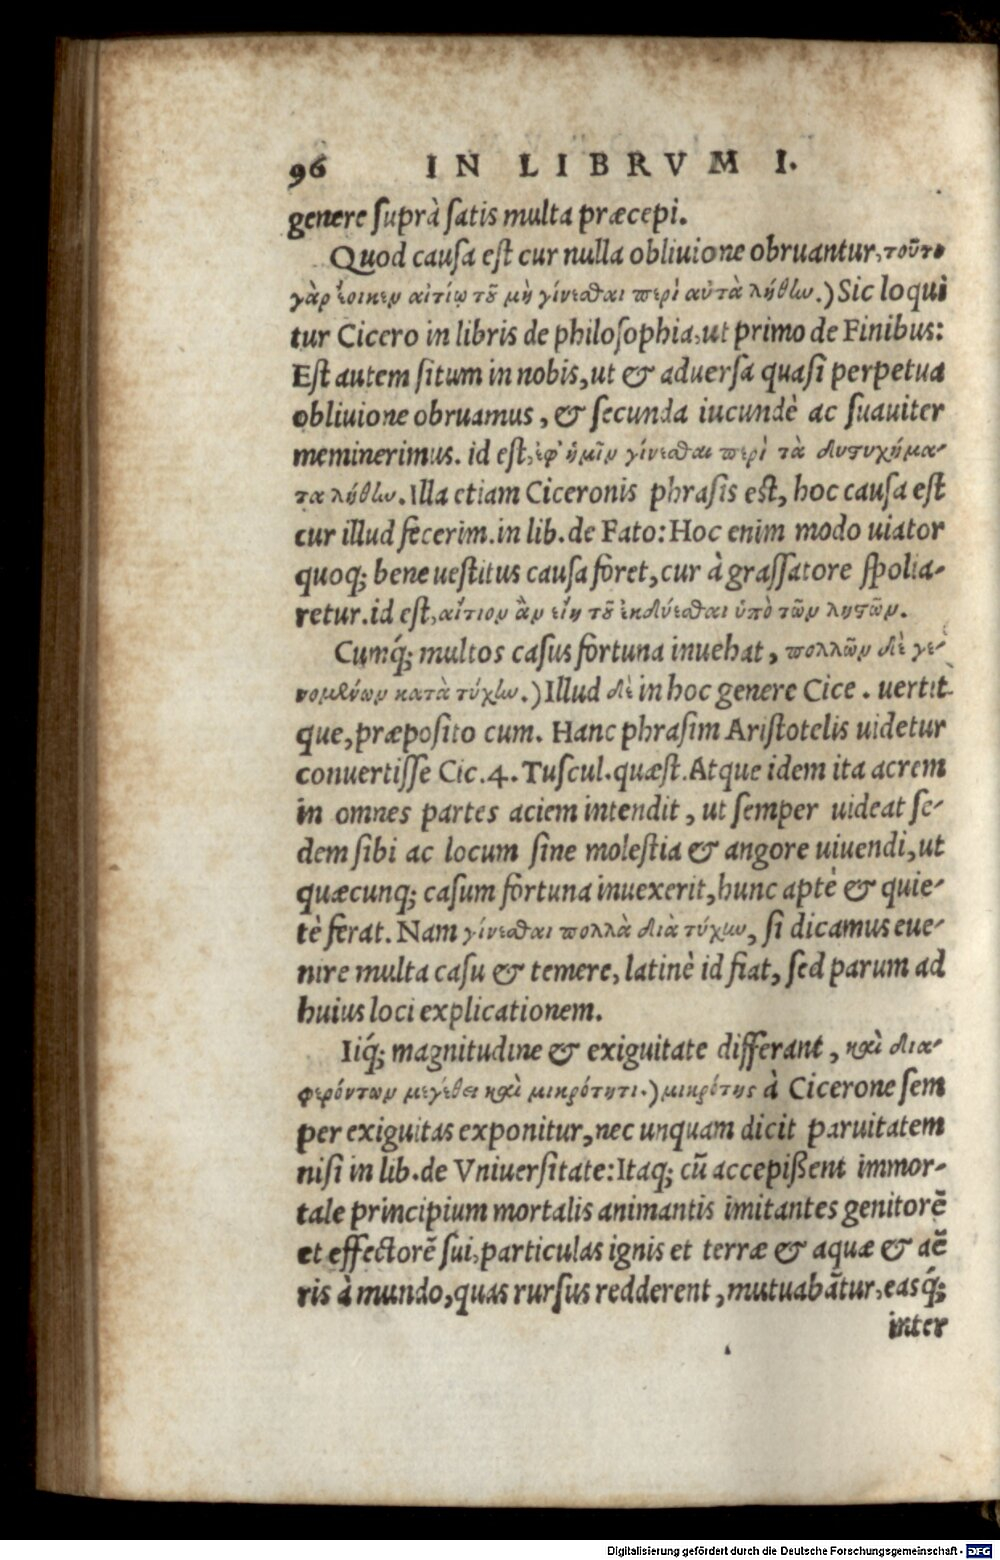 96 IN LIBRVM I.
genere suprà satis multa præcepi.
Quod causa est cur nulla obliuione obruantur, τοῦτο
γὰρ ἔοικεν αἰτίῳ τοῦ μὴ γίνεσθαι περὶ αὐτὰ λήθην.) Sic loqui
tur Cicero in libris de philosophia, ut primo de Finibus:
Est autem situm in nobis, ut & aduersa quasi perpetua
obliuione obruamus, & secunda iucundè ac suauiter
meminerimus. id est, ἐφ' ἡμῖν γίνεσθαι περὶ τὰ δυστυχήμα-
τα λήθην. Illa etiam Ciceronis phrasis est, hoc causa est
cur illud fecerim. in lib. de Fato: Hoc enim modo uiator
quoq; bene uestitus causa foret, cur à grassatore spolia-
retur. id est, αἴτιον ἂν εἴη τοῦ ἐκδύεσθαι ὑπὸ τῶν λῃστῶν.
Cumq́; multos casus fortuna inuehat, πολλῶν δὲ γε-
νομένων κατὰ τύχην.) Illud δὲ in hoc genere Cice. uertit
que, præposito cum. Hanc phrasim Aristotelis uidetur
conuertisse Cic. 4. Tuscul. quæst. Atque idem ita acrem
in omnes partes aciem intendit, ut semper uideat se-
dem sibi ac locum sine molestia & angore uiuendi, ut
quæcunq; casum fortuna inuexerit, hunc aptè & quie-
tè ferat. Nam γίνεσθαι πολλὰ διὰ τύχην, si dicamus eue-
nire multa casu & temere, latinè id fiat, sed parum ad
huius loci explicationem.
Iiq́; magnitudine & exiguitate differant, καὶ δια-
φερόντων μεγέθει καὶ μικρότητι.) μικρότης à Cicerone sem
per exiguitas exponitur, nec unquam dicit paruitatem
nisi in lib. de Vniuersitate: Itaq; cū accepißent immor-
tale principium mortalis animantis imitantes genitorē
et effectorē sui, particulas ignis et terræ & aquæ & aë
ris à mundo, quas rursus redderent, mutuabātur, easq́;
inter
Digitalisierung gefördert durch die Deutsche Forschungsgemeinschaft - DFG